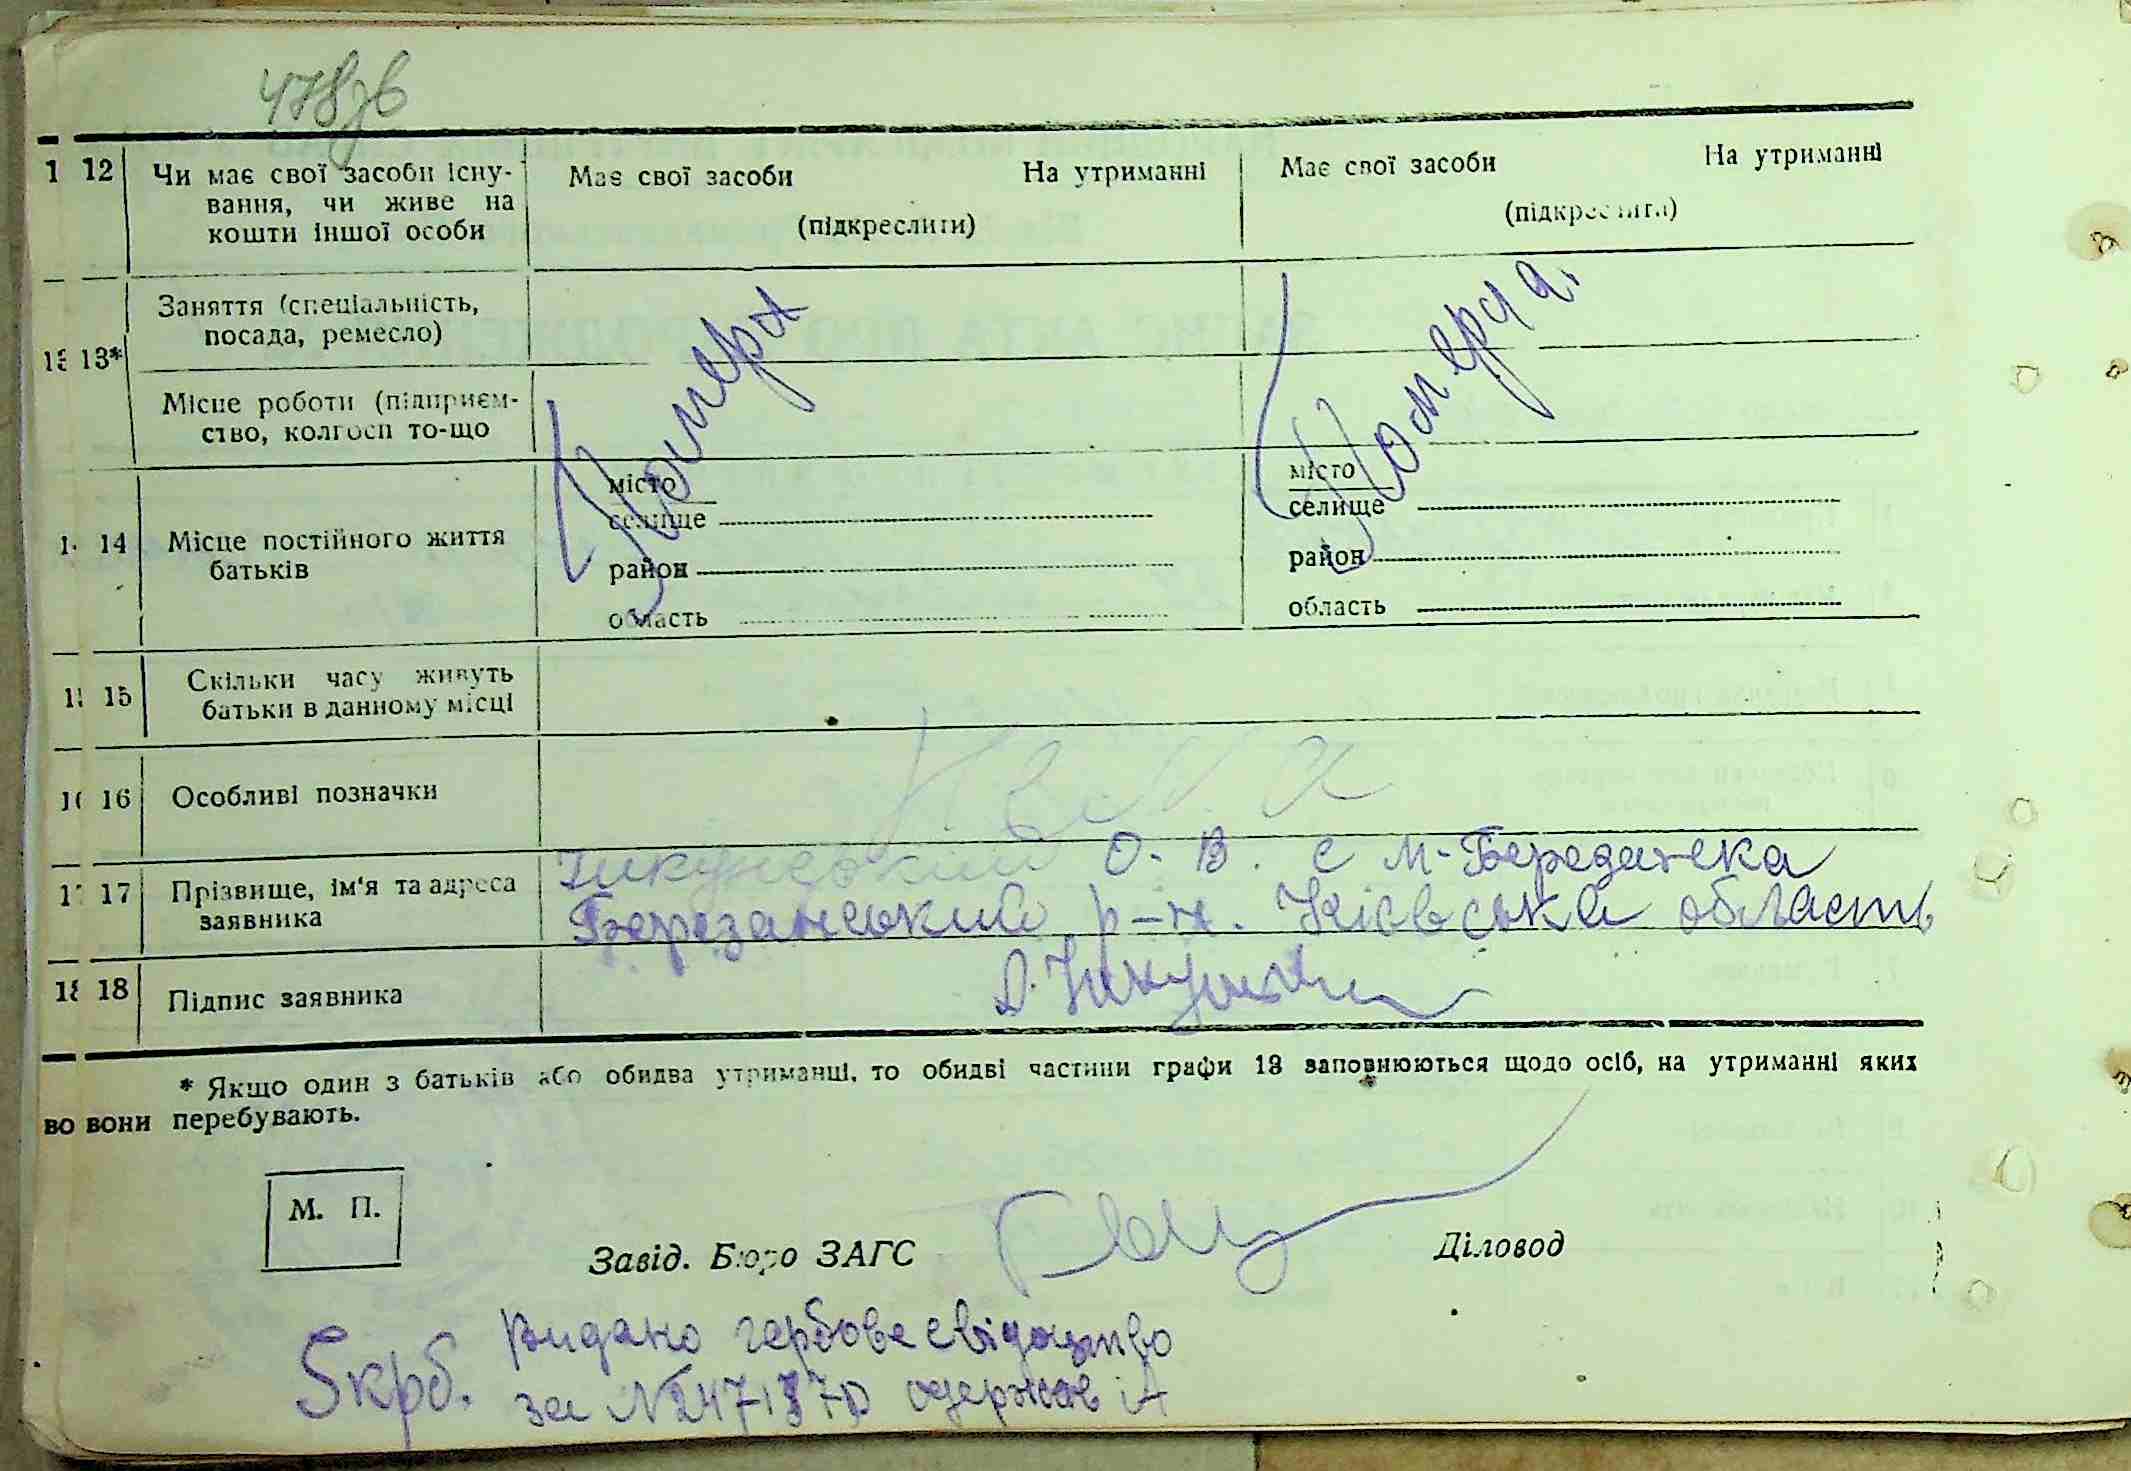 478зв
1 12 Чи має свої засоби існу-
вання, чи живе на
кошти іншої особи
Має свої засоби На утриманні
(підкреслити)
Має свої засоби На утриманні
(підкреслити)
13 13* Заняття (спеціальність,
посада, ремесло)
Місце роботи (підприєм-
ство, колгосп то-що
Померл
Померла.
14 Місце постійного життя
батьків
місто
селище
район
область
місто
селище
район
область
15 Скільки часу живуть
батьки в данному місці
16 Особливі позначки
17 Прізвище, ім'я та адреса
заявника
О. В. с м-Березанека
Березанський р-н. Київська область
18 Підпис заявника
* Якщо один з батьків або обидва утриманці, то обидві частини графи 13 заповнюються щодо осіб, на утриманні яких
во вони перебувають.
М. П.
Завід. Бюро ЗАГС
Діловод
5крб. Видано гербове свідоцтво
за № одержав